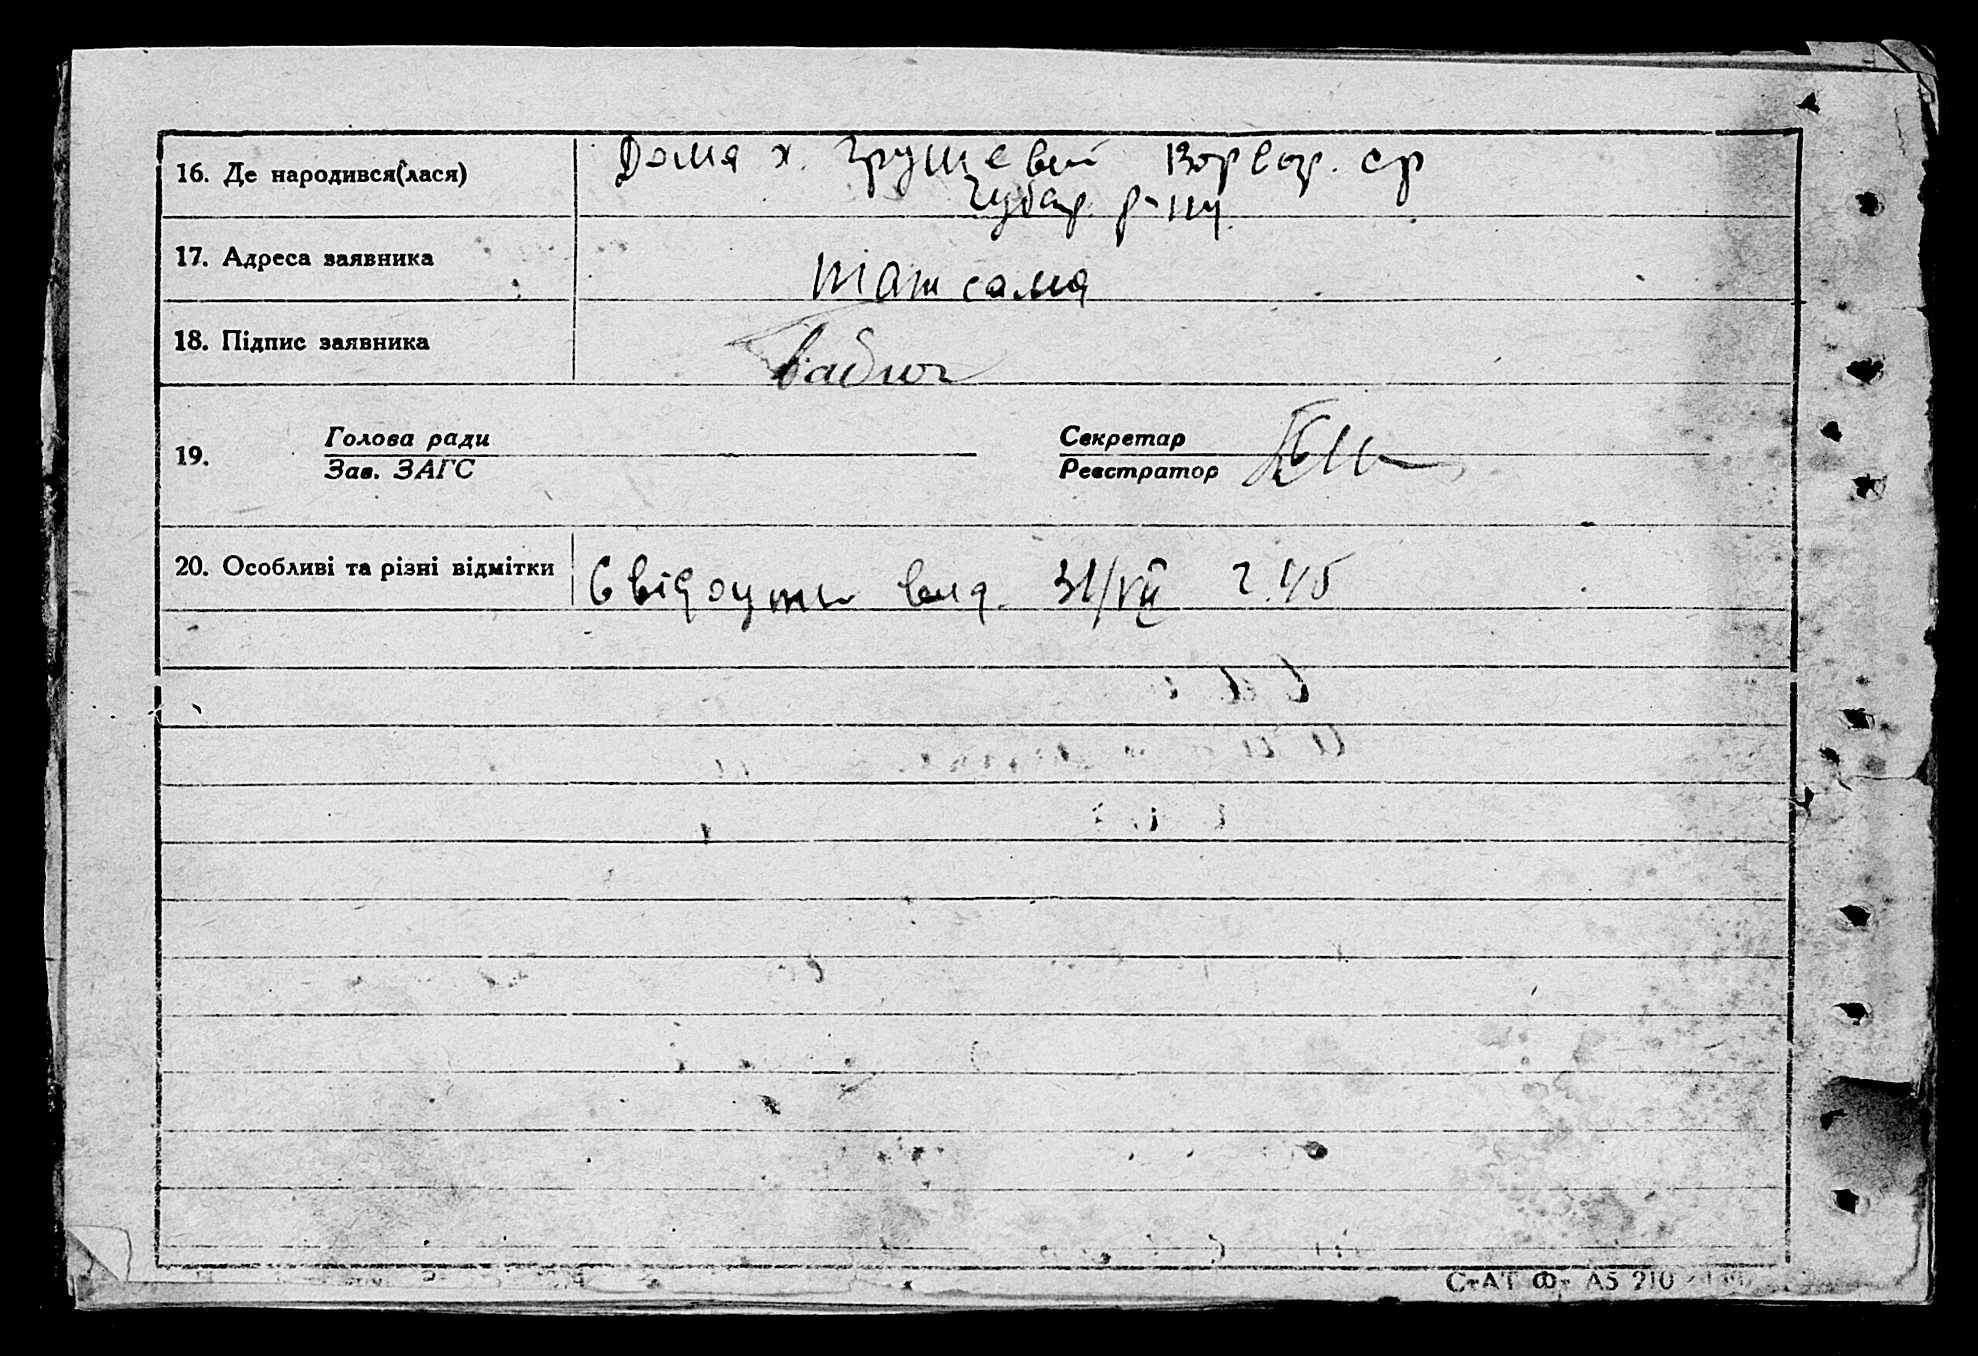 16. Де народився(лася) Дома х. Грушевий Варвар. ср
Чубар. р-ну
17. Адреса заявника таж сама
18. Підпис заявника Бабюк
19. Голова ради Секретар
Зав. ЗАГС Реєстратор
20. Особливі та різні відмітки Свідоцтво вид. 31/VII
СтАТ Фт А5 210